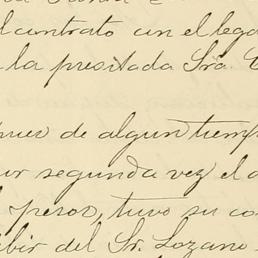 l contrato en el lega
la presitada Sra.
pues de algun tiemp
ur segunda vez el
pesos, tuvo su co
ibir del Sr. Lozano